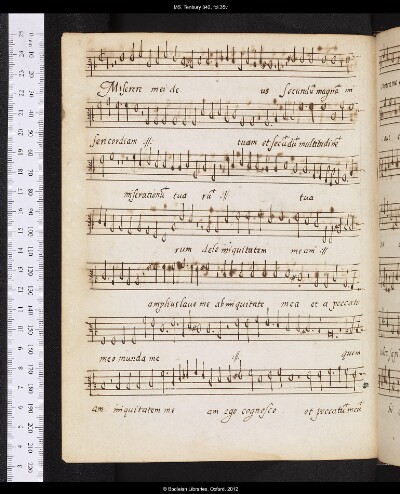 MS. Tenbury 340, fol.35v
Miserere mei de us secundū magnā mi
sericordiam :||: tuam et secūdū multitudinē
miserationū tua rū :||: tua
rum dele iniquitatem meam :||
amplius laua me ab iniquitate mea et a peccato
meo munda me ij. quoni
am iniquitatem me am ego cognosco et peccatū meū
© Bodleian Libraries, Oxford, 2012